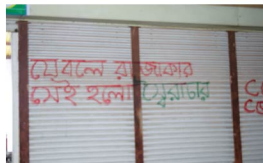 যে বলে রাজাকার
সেই হলো স্বৈরাচার